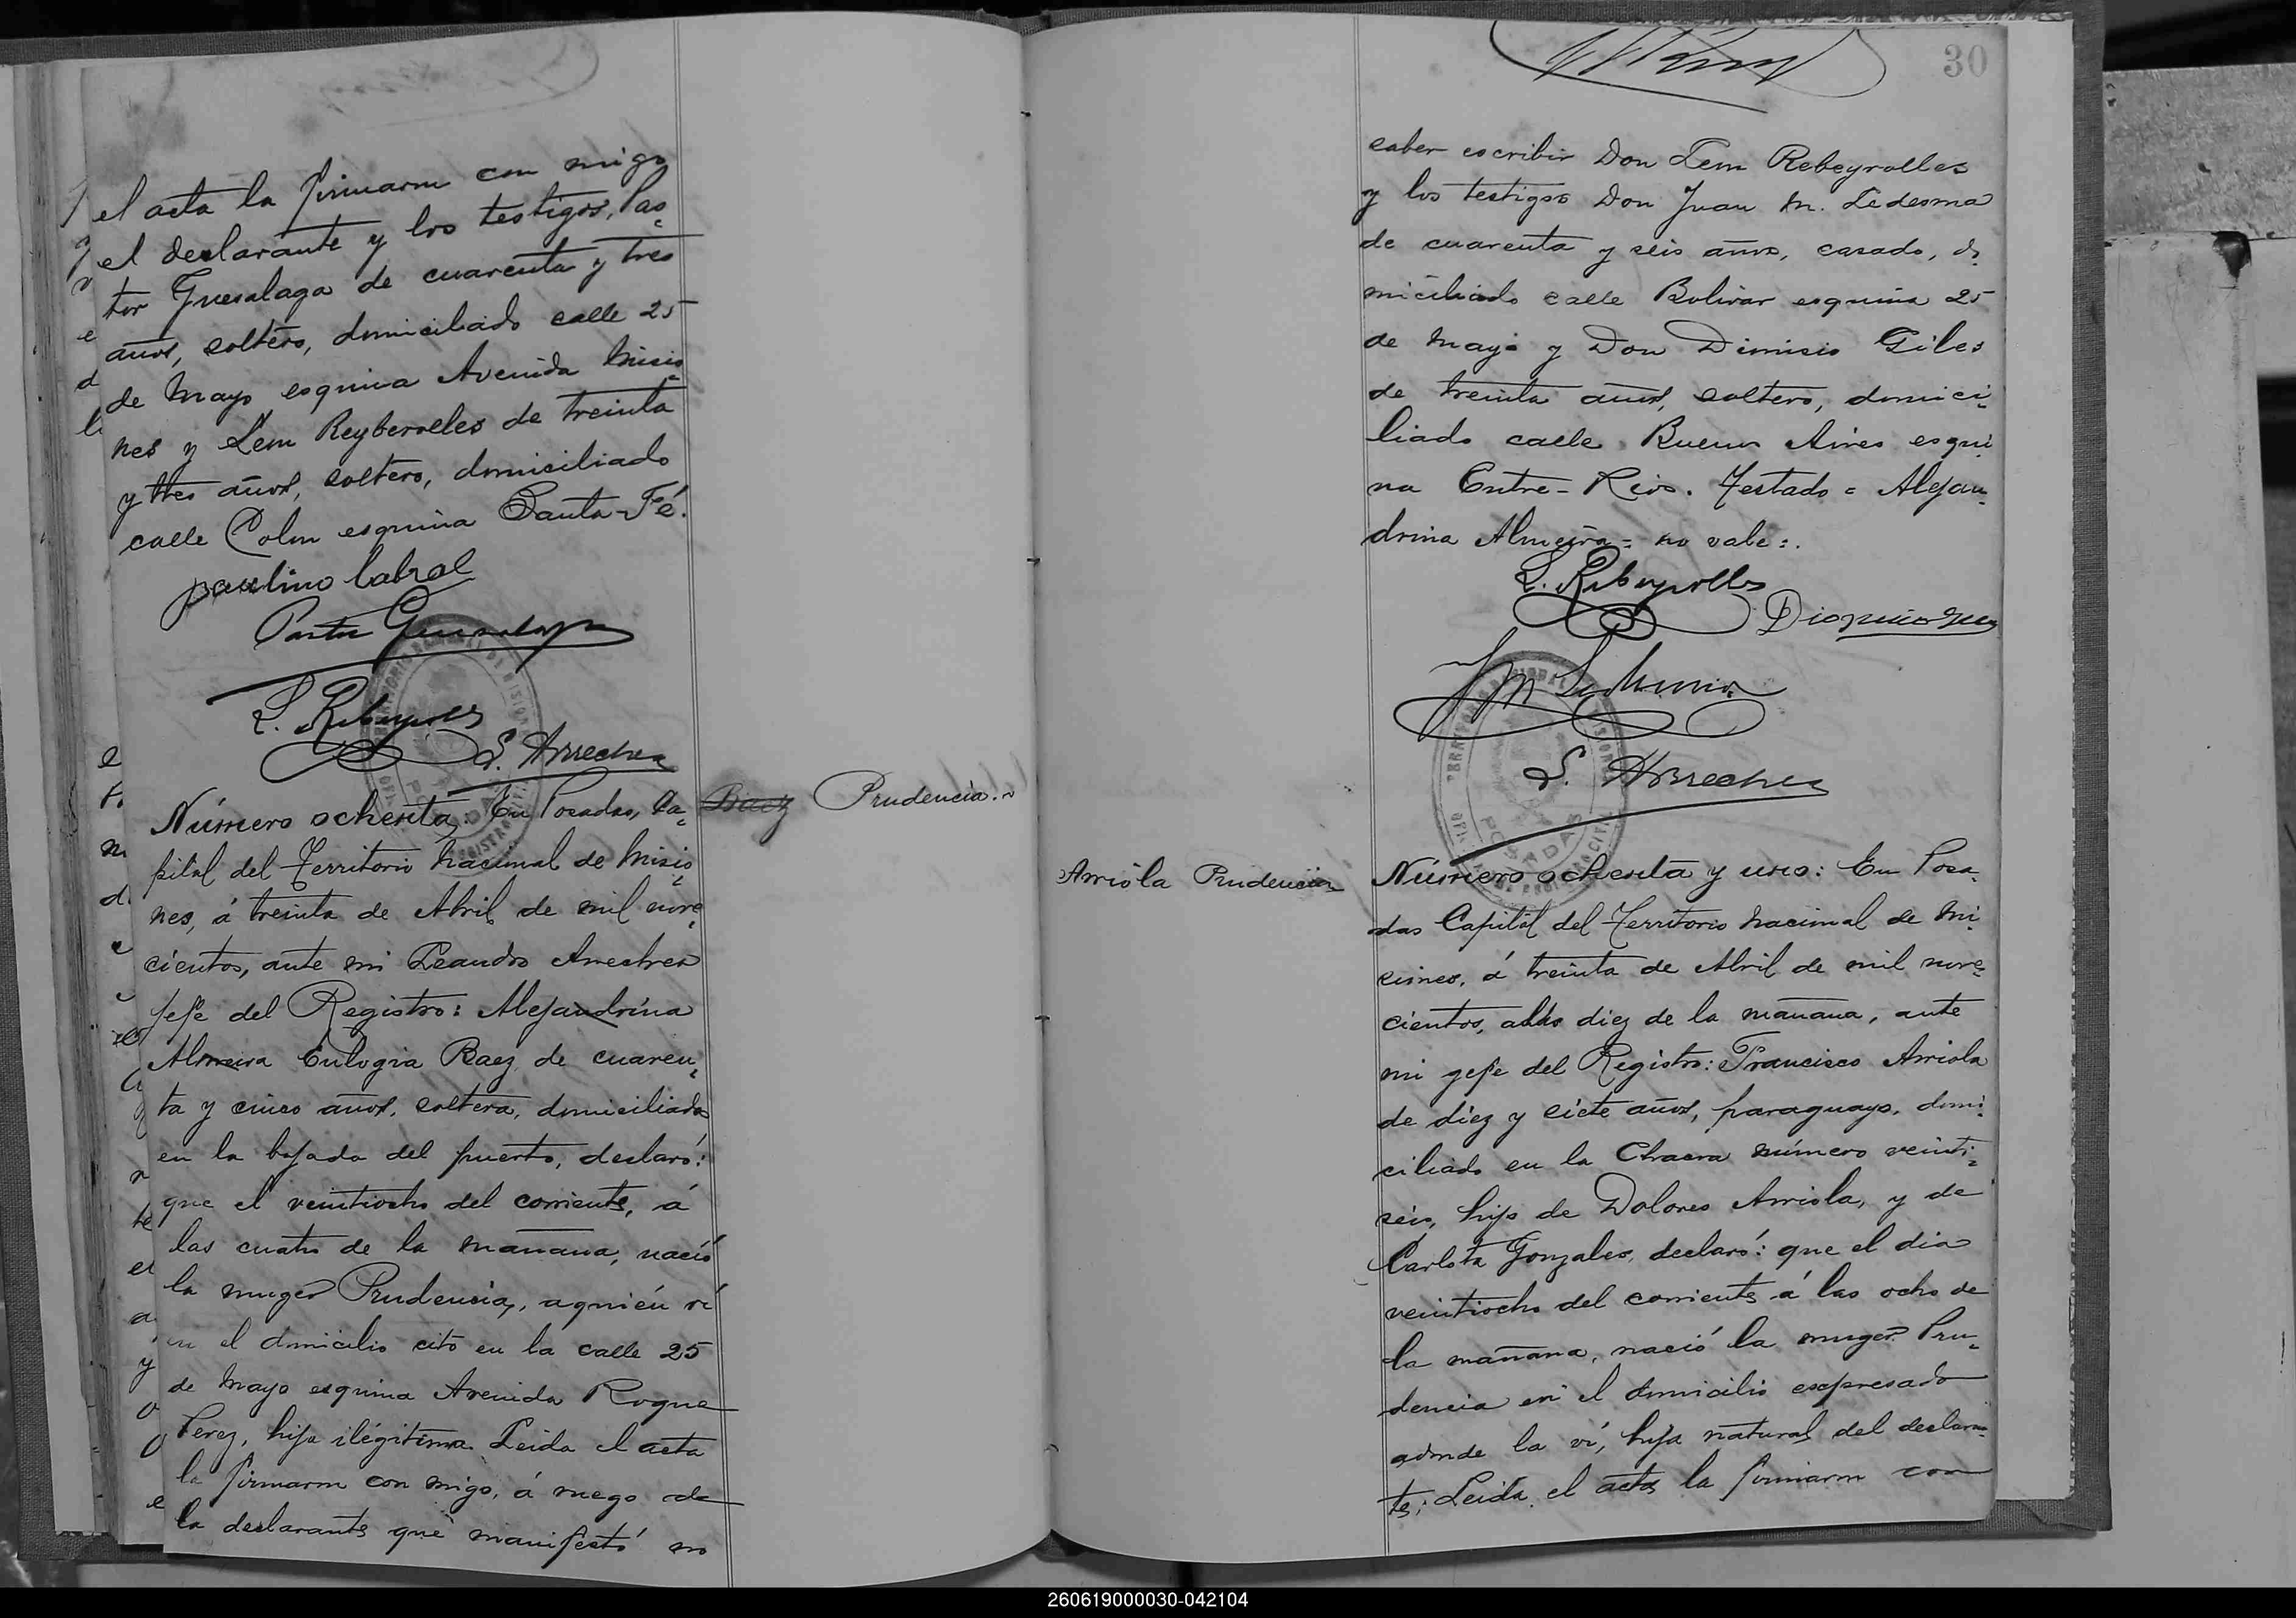 el acta la firmaron con migo
el declarante y los testigos, Pas-
tor Guesalaga de cuarenta y tres
años, soltero, domiciliado calle 25
de Mayo esquina Avenida Misio-
nes y Leon Reyberolles de treinta
y tres años, soltero, domiciliado
calle Colon esquina Santa-Fé.
paulino Cabral
Pastor Guesalaga
L. Rebeyrolles
L. Arrechea
Número ochenta: En Posadas, Ca-
pital del Territorio Nacional de Misio-
nes, á treinta de Abril de mil nove-
cientos, ante mi Leandro Arrechea
jefe del Registro: Alejandrina
Almeira Eulogia Baez de cuaren-
ta y cinco años, soltera, domiciliada
en la bajada del puerto, declaró:
que el veintiocho del corriente, á
las cuatro de la mañana, nació
la muger Prudencia, aquién ví
en el domicilio cito en la calle 25
de Mayo esquina Avenida Roque
Perez, hija ilégitima. Leida el acta
la firmaron con migo, á ruego de
la declarante que manifestó no
Baez Prudencia.
30
saber escribir Don Leon Rebeyrolles
y los testigos Don Juan M. Ledesma
de cuarenta y seis años, casado, do-
miciliado calle Bolivar esquina 25
de Mayo y Don Dionisio Giles
de treinta años, soltero, domici-
liado calle Buenos Aires esqui-
na Entre-Rios. Testado = Alejan-
drina Almeira = no vale:.
L. Rebeyrolles
Dionisio
JM Ledesma
L. Arrechea
Arriola Prudencia
Número ochenta y uno: En Posa-
das Capital del Territorio Nacional de Mi-
siones, á treinta de Abril de mil nove-
cientos, alas diez de la mañana, ante
mi gefe del Registro: Francisco Arriola
de diez y siete años, paraguayo, domi-
ciliado en la Chacra número veinti-
séis, hijo de Dolores Arriola, y de
Carlota Gonzales, declaró: que el dia
veintiocho del corriente á las ocho de
la mañana, nació la muger Pru-
dencia en el domicilio expresado
adonde la ví, hija natural del declaran-
te; Leida el acta la firmaron con
260619000030-042104